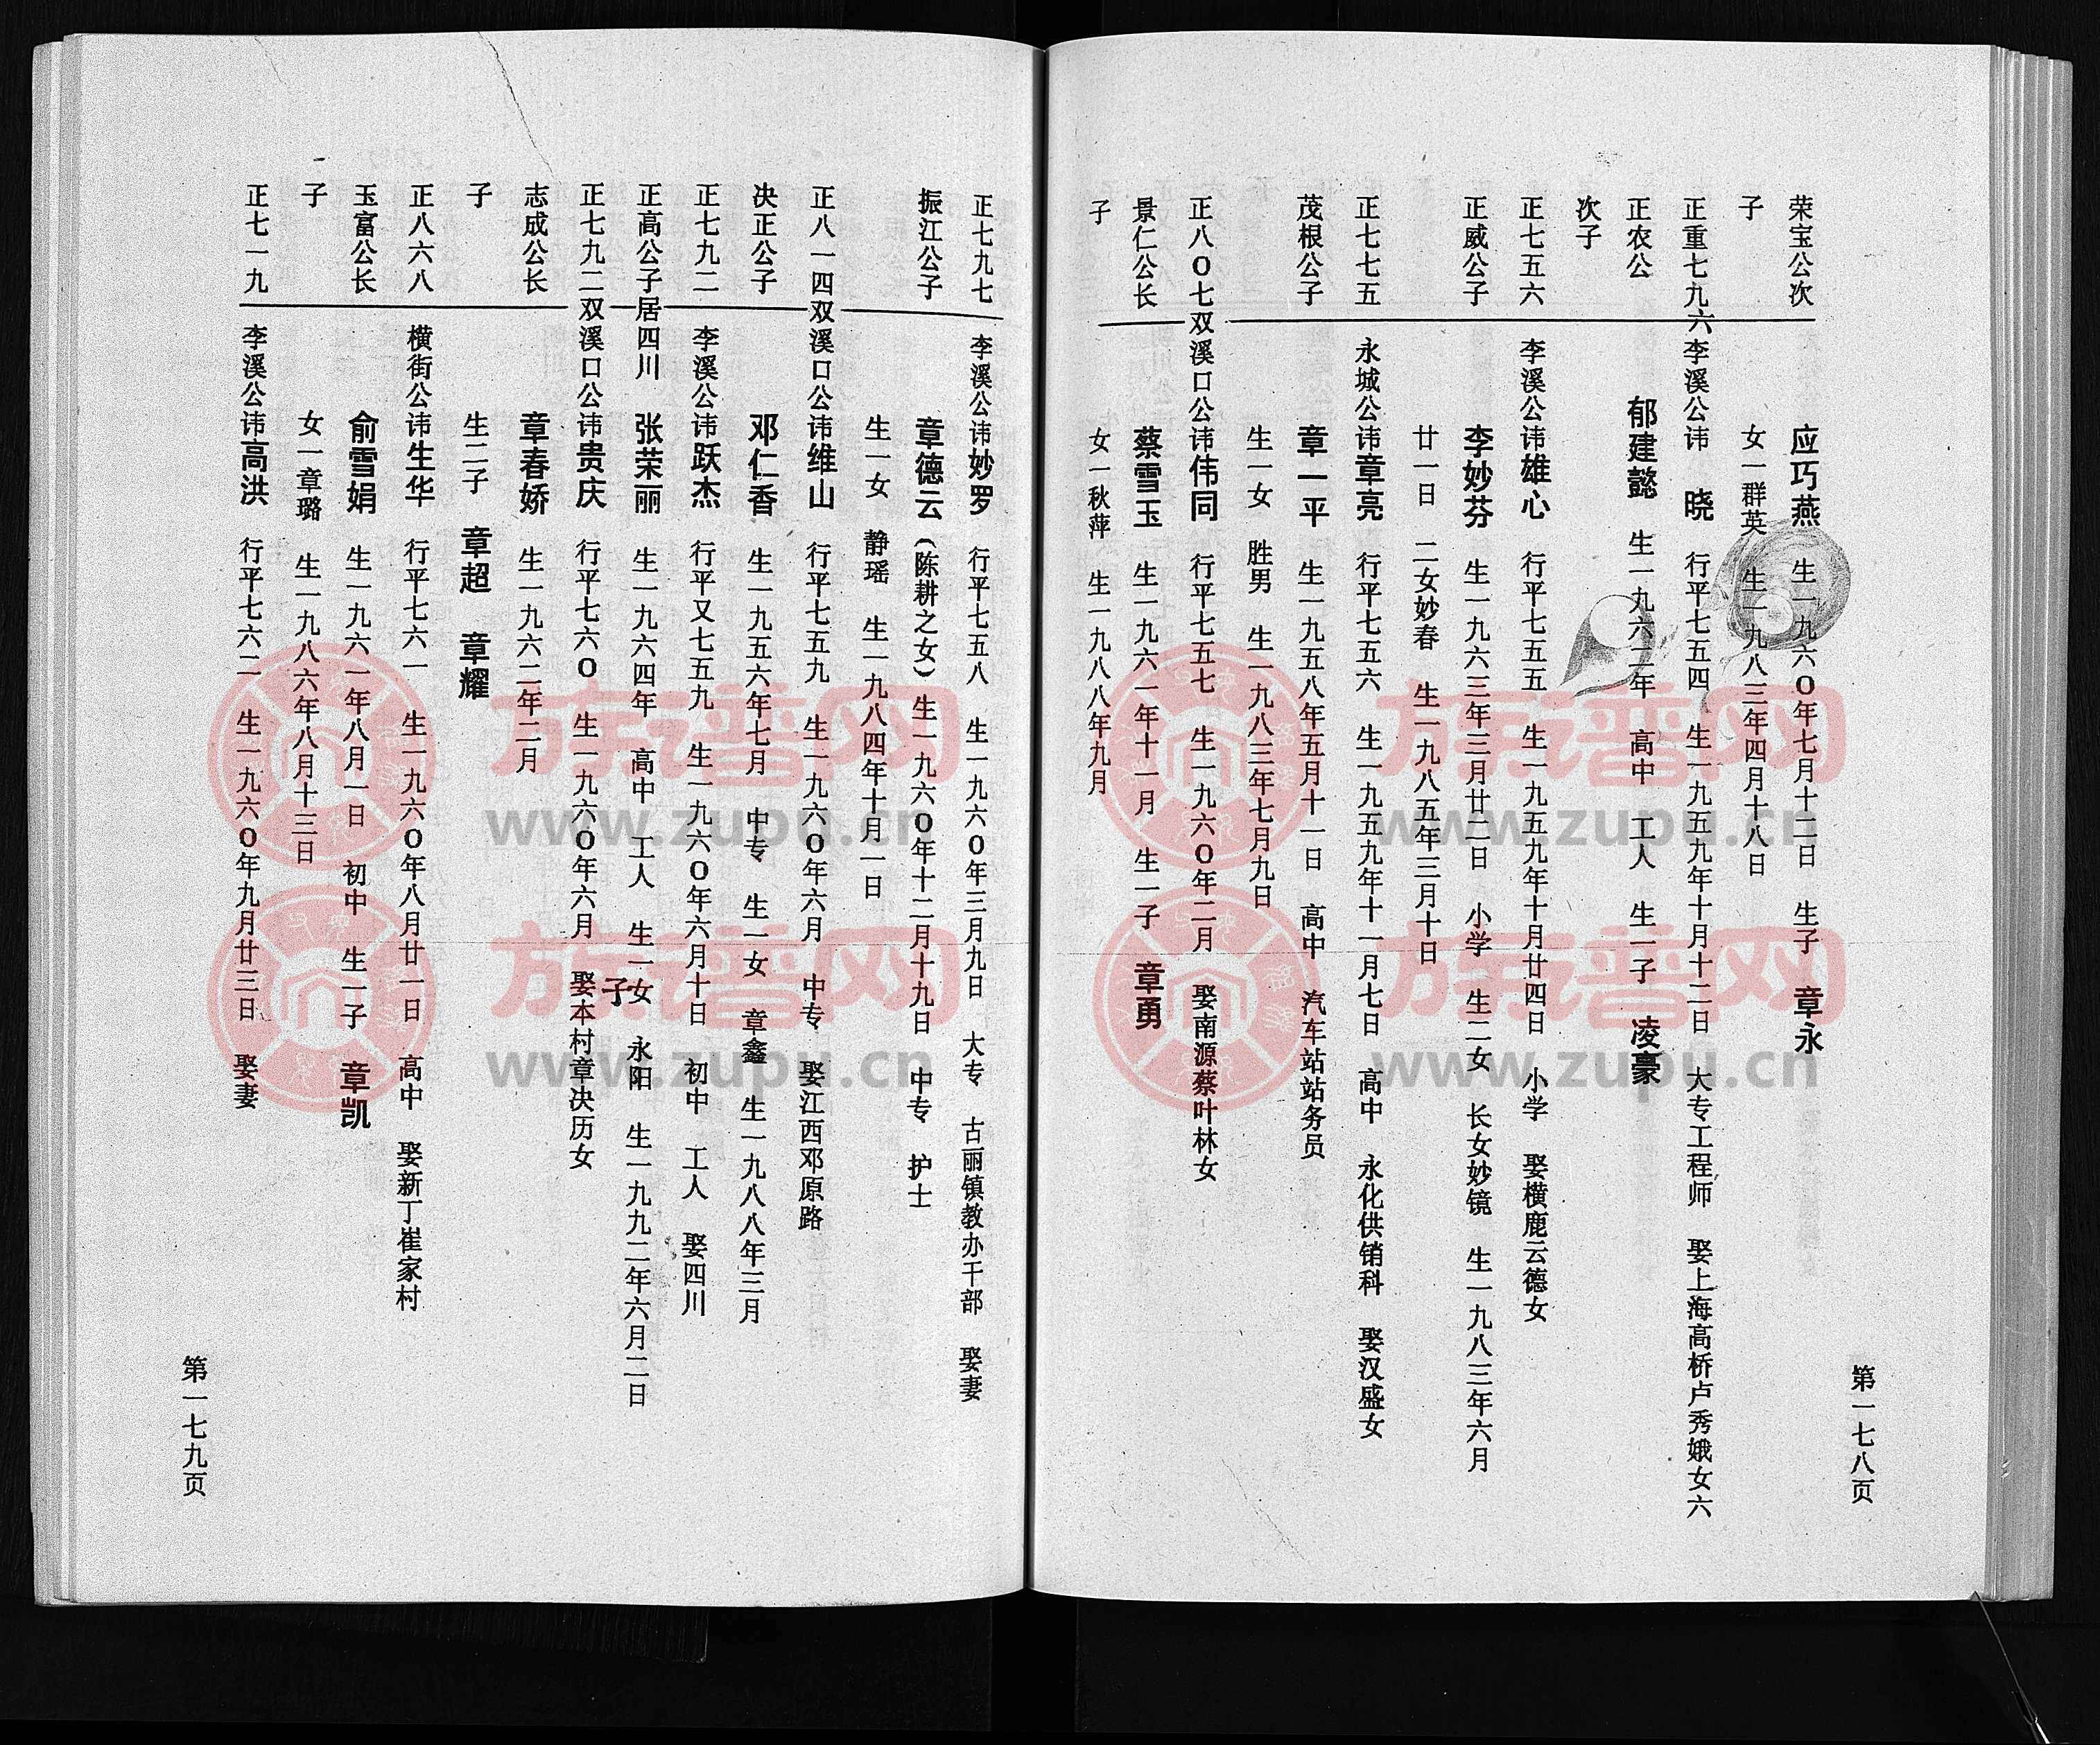 第一七八页
荣宝公次 应巧燕 生一九六〇年七月十二日 生子 章永
子 女一群英 生一九八三年四月十八日
正重七九六李溪公讳 晓 行平七五四 生一九五九年十月十二日 大专工程师 娶上海高桥卢秀娥女六
正农公 郁建懿 生一九六二年 高中 工人 生一子 凌豪
次子
正七五六 李溪公讳雄心 行平七五五 生一九五九年十月廿四日 小学 娶横鹿云德女
正威公子 李妙芬 生一九六三年三月廿二日 小学 生二女 长女妙镜 生一九八三年六月
廿一日 二女妙春 生一九八五年三月十日
正七七五 永城公讳章亮 行平七五六 生一九五九年十一月七日 高中 永化供销科 娶汉盛女
茂根公子 章一平 生一九五八年五月十一日 高中 汽车站站务员
生一女 胜男 生一九八三年七月九日
正八〇七双溪口公讳伟同 行平七五七 生一九六〇年二月 娶南源蔡叶林女
景仁公长 蔡雪玉 生一九六一年十一月 生一子 章勇
子 女一秋萍 生一九八八年九月
正七九七 李溪公讳妙罗 行平七五八 生一九六〇年三月九日 大专 古丽镇教办干部 娶妻
振江公子 章德云(陈耕之女) 生一九六〇年十二月十九日 中专 护士
生一女 静瑶 生一九八四年十月一日
正八一四双溪口公讳维山 行平七五九 生一九六〇年六月 中专 娶江西邓原路
决正公子 邓仁香 生一九五六年七月 中专 生一女 章鑫 生一九八八年三月
正七九二 李溪公讳跃杰 行平又七五九 生一九六〇年六月十日 初中 工人 娶四川
正高公子居四川 张荣丽 生一九六四年 高中 工人 生一女子 永阳 生一九九二年六月二日
正七九二双溪口公讳贵庆 行平七六〇 生一九六〇年六月 娶本村章决历女
志成公长 章春娇 生一九六二年二月
子 生二子 章超 章耀
正八六八 横街公讳生华 行平七六一 生一九六〇年八月廿一日 高中 娶新丁崔家村
玉富公长 俞雪娟 生一九六一年八月一日 初中 生一子 章凯
子 女一章璐 生一九八六年八月十三日
正七一九 李溪公讳高洪 行平七六二 生一九六〇年九月廿三日 娶妻
第一七九页
族谱网
www.zupu.cn
族谱网
www.zupu.cn
族谱网
www.zupu.cn
族谱网
www.zupu.cn